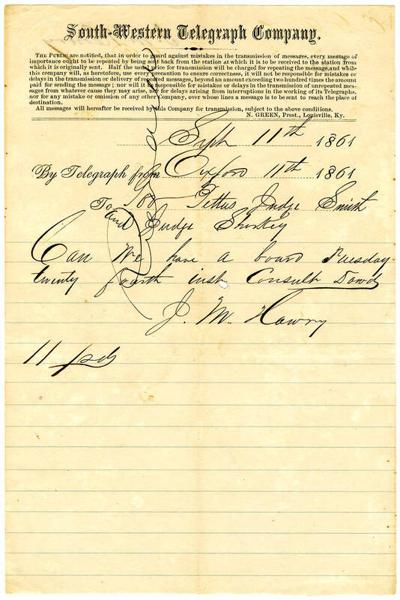 South-Western Telegraph Company.
THE PUBLIC are notified, that in order to guard against mistakes in the transmission of messages, every message of
importance ought to be repeated by being sent back from the station at which it is to be received to the station from
which it is originally sent. Half the usual price for transmission will be charged for repeating the message, and while
this company will, as heretofore, use every precaution to ensure correctness, it will not be responsible for mistakes or
delays in the transmission or delivery of repeated messages, beyond an amount exceeding two hundred times the amount
paid for sending the message; nor will it be responsible for mistakes or delays in the transmission of unrepeated messages
from whatever cause they may arise, nor for delays arising from interruptions in the working of its Telegraphs,
nor for any mistake or omission of any other Company, over whose lines a message is to be sent to reach the place of
destination.
All messages will hereafter be received by this Company for transmission, subject to the above conditions.
N. GREEN, Prest., Louisville, Ky.
Sept 11th 1861
By Telegraph from Oxford 11th 1861
To Pettus Judge Smith
and Judge Sharkey
Can We have a board Tuesday
twenty fourth inst Consult Dowd
J. M. Howry
11 pd